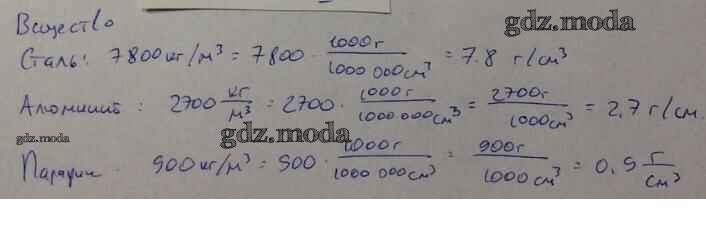 Вещество
gdz.moda
Сталь: 7800 кг/м³ = 7800 · 1000г / 1000 000см³ = 7.8 г/см³
Алюминий: 2700 кг/м³ = 2700 · 1000г / 1000 000см³ = 2700г / 1000см³ = 2,7 г/см.
gdz.moda
gdz.moda
Парафин 900 кг/м³ = 900 · 1000г / 1000 000см³ = 900г / 1000см³ = 0,9 г/см³